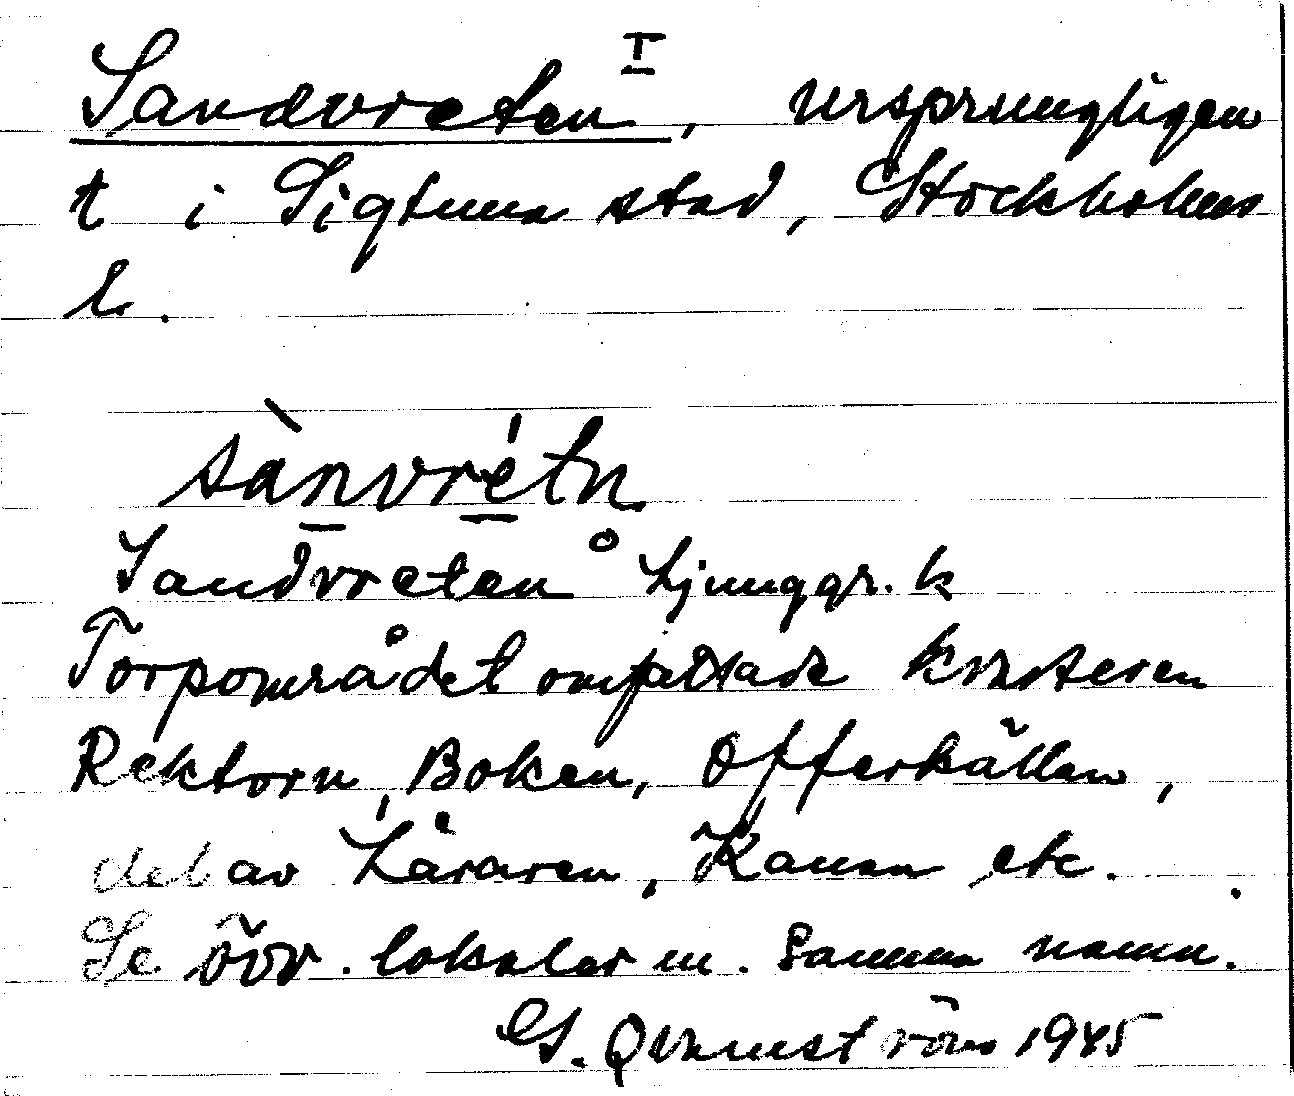 Sandvreten I, ursprungligen
t i Sigtuna stad, Stockholms
l.
sànvrétn
Sandvreten Ljunggr. k
Torpområdet omfattade kvarteren
Rektorn, Boken, Offerkällan,
del av Läraren, Kanan etc.
Se övr. lokaler m. samma namn.
G. Qvarnström 1945